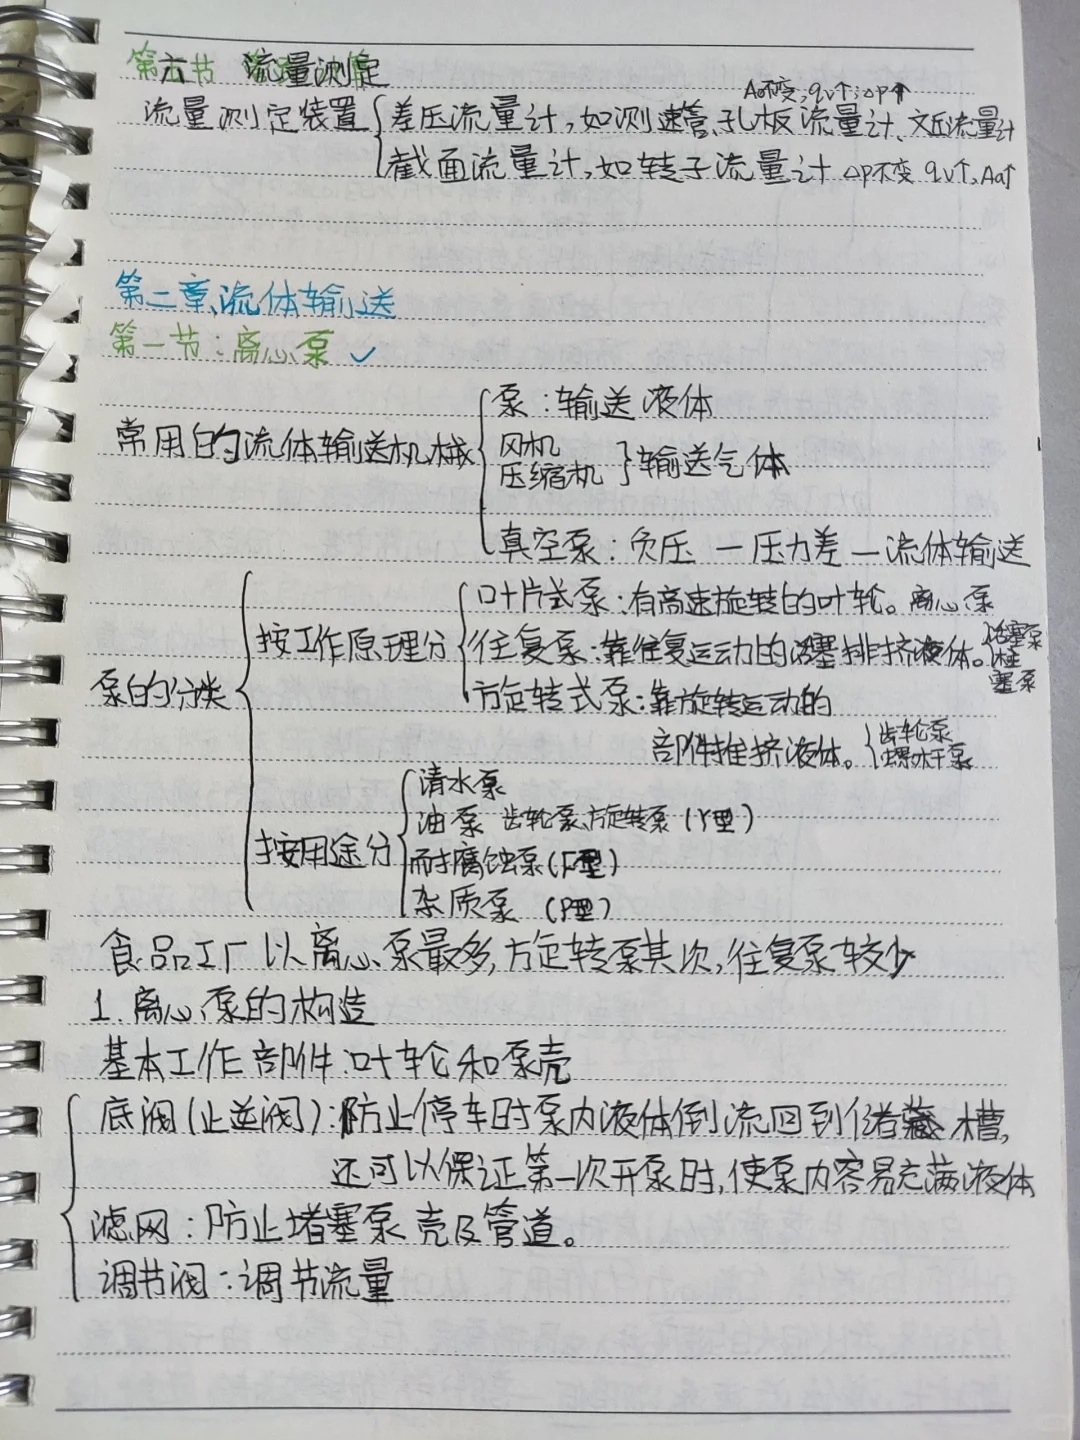 第六节 流量测定
A₀不变,qv↑,Δp↑
流量测定装置 { 差压流量计,如测速管、孔板流量计、文丘流量计
截面流量计,如转子流量计 Δp不变 qv↑,A₀↑
第二章、流体输送
第一节:离心泵 ✓
泵:输送液体
常用的流体输送机械 { 风机
压缩机 } 输送气体
真空泵:负压—压力差—流体输送
叶片式泵:有高速旋转的叶轮。离心泵
按工作原理分 { 往复泵:靠往复运动的活塞排挤液体。{ 活塞泵
柱塞泵
泵的分类 { 旋转式泵:靠旋转运动的
部件推挤液体。{ 齿轮泵
螺杆泵
清水泵
油泵 齿轮泵、旋转泵(Y型)
按用途分 { 耐腐蚀泵(F型)
杂质泵 (P型)
食品工厂以离心泵最多,旋转泵其次,往复泵较少
1. 离心泵的构造
基本工作部件:叶轮和泵壳
底阀(止逆阀):防止停车时泵内液体倒流回到储藏槽,
还可以保证第一次开泵时,使泵内容易充满液体
滤网:防止堵塞泵壳及管道。
调节阀:调节流量